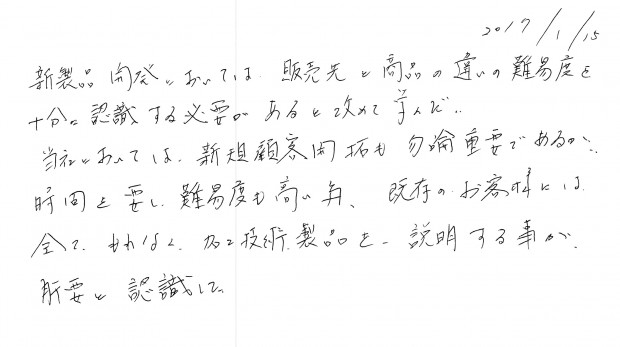 2017/1/15
新製品開発においては、販売先と商品の違いの難易度を
十分に認識する必要があると改めて学んだ。
当社においては、新規顧客開拓も勿論重要であるが、
時間を要し、難易度も高い為、既存のお客様には
全て、もれなく、加工技術、製品を、説明する事が、
肝要と認識した。